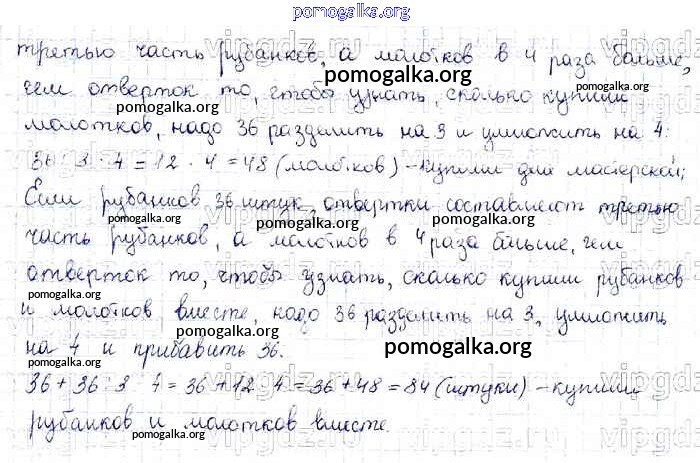 pomogalka.org
третью часть рубанков, а молотков в 4 раза больше,
pomogalka.org
чем отверток то, чтобы узнать, сколько купили
pomogalka.org
молотков, надо 36 разделить на 3 и умножить на 4:
36 : 3 · 4 = 12 · 4 = 48 (молотков) – купили для мастерской;
Если рубанков 36 штук, отвертки составляют третью
pomogalka.org pomogalka.org
часть рубанков, а молотков в 4 раза больше, чем
отверток то, чтобы узнать, сколько купили рубанков
pomogalka.org
и молотков вместе, надо 36 разделить на 3, умножить
pomogalka.org
на 4 и прибавить 36.
pomogalka.org
36 + 36 : 3 · 4 = 36 + 12 · 4 = 36 + 48 = 84 (штуки) – купили
pomogalka.org
рубанков и молотков вместе.
pomogalka.org